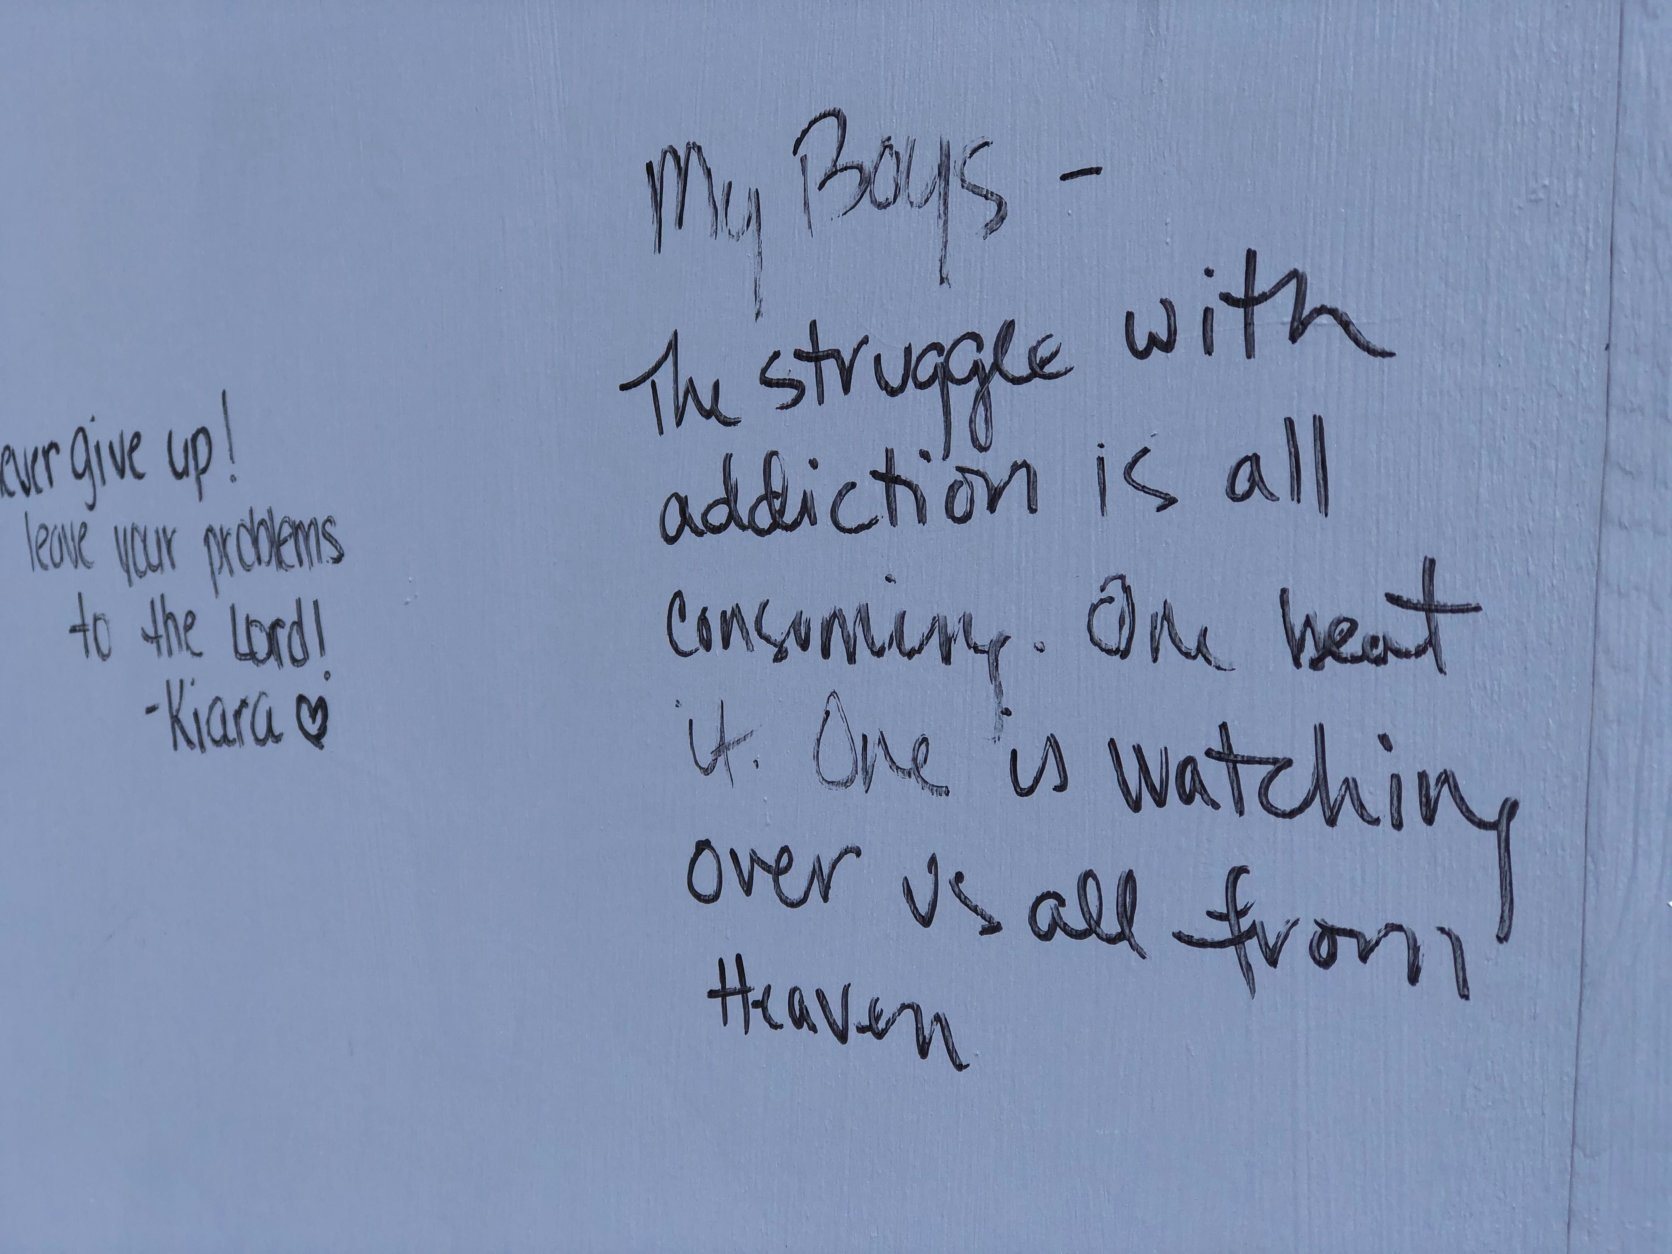 ever give up!
leave your problems
to the Lord!
-Kiara ♡
My Boys -
The struggle with
addiction is all
consuming. One beat
it. One is watching
over us all from
Heaven